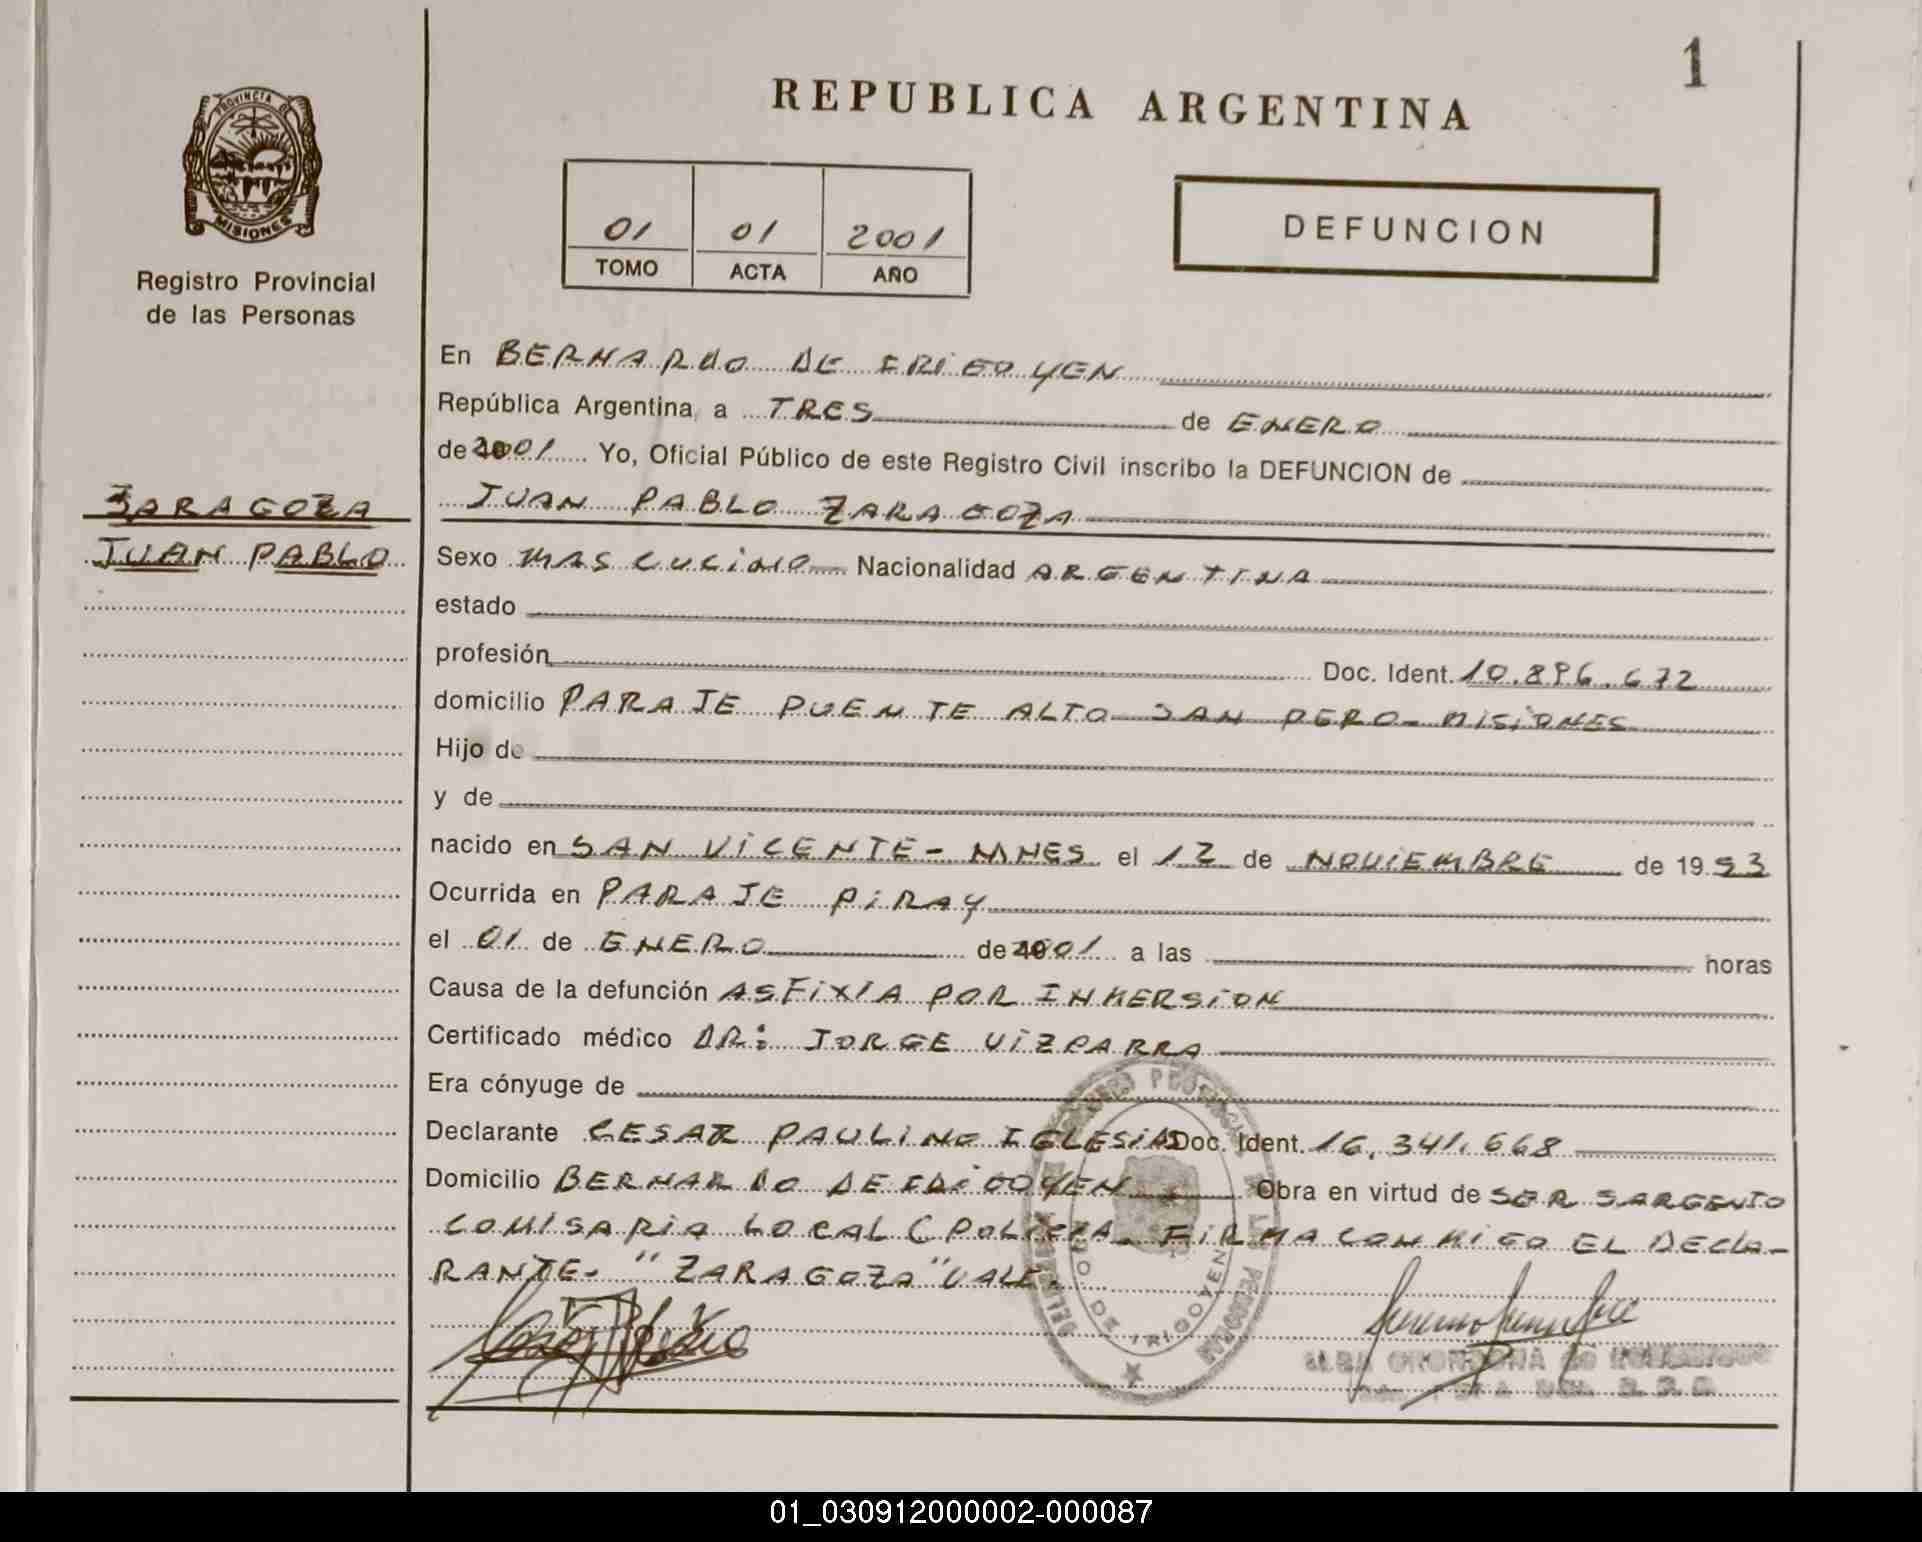 1
REPUBLICA ARGENTINA
PROVINCIA DE
MISIONES
Registro Provincial
de las Personas
01 01 2001
TOMO ACTA AÑO
DEFUNCION
En BERNARDO DE IRIGOYEN
República Argentina, a TRES de ENERO
de 2001 Yo, Oficial Público de este Registro Civil inscribo la DEFUNCION de
ZARAGOZA
JUAN PABLO
JUAN PABLO ZARAGOZA
Sexo MASCUCINO Nacionalidad ARGENTINA
estado
profesión Doc. Ident. 10.896.672
domicilio PARAJE PUENTE ALTO SAN PERO - MISIONES
Hijo de
y de
nacido en SAN VICENTE - MNES el 12 de NOVIEMBRE de 1953
Ocurrida en PARAJE PIRAY
el 01 de ENERO de 2001 a las horas
Causa de la defunción ASFIXIA POR INMERSION
Certificado médico DR: JORGE VIZPARRA
Era cónyuge de
Declarante CESAR PAULINO IGLESIAS Doc. Ident. 16.341.668
Domicilio BERNARDO DE IRIGOYEN Obra en virtud de SER SARGENTO
COMISARIA LOCAL (POLICIA. FIRMA CON MIGO EL DECLA-
RANTE- "ZARAGOZA" VALE.
DE IRIGOYEN
01_030912000002-000087